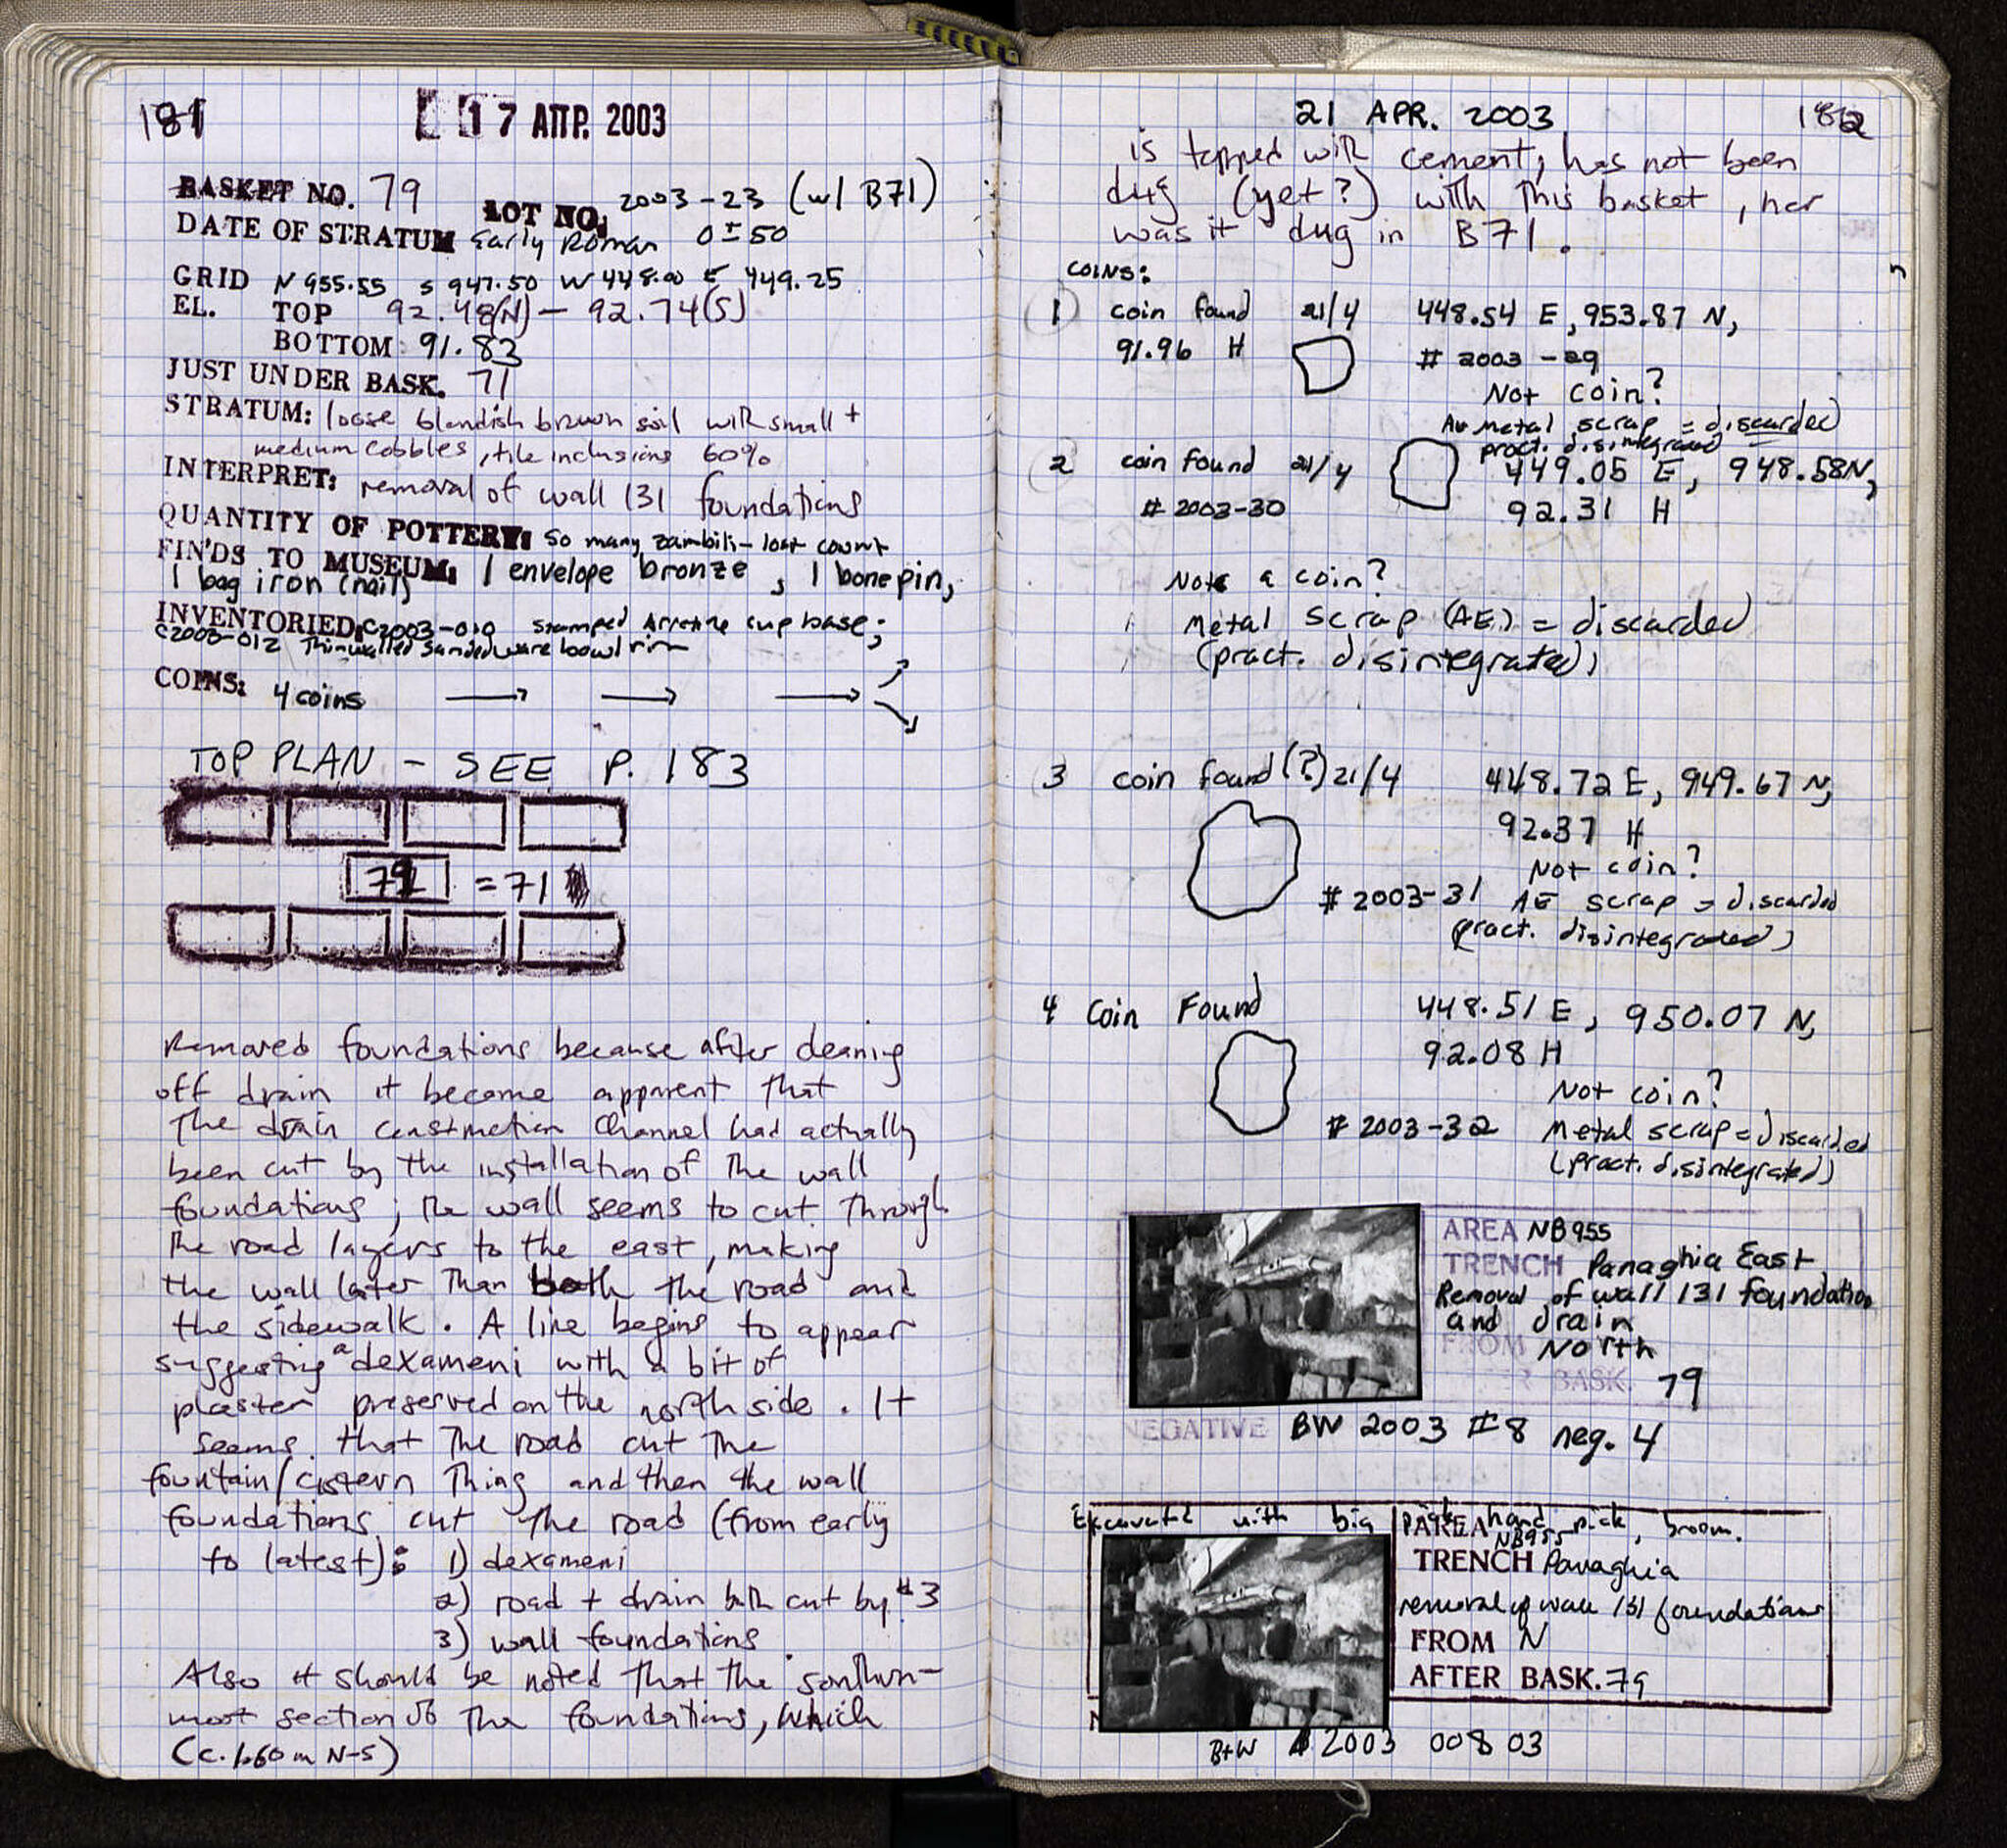 181
17 ΑΠΡ. 2003
BASKET NO. 79
LOT NO: 2003-23 (w/ B71)
DATE OF STRATUM Early Roman 0±50
GRID N 955.55 S 947.50 W 448.00 E 449.25
EL. TOP 92.48(N) - 92.74(S)
BOTTOM 91.83
JUST UNDER BASK. 71
STRATUM: loose blondish brown soil with small +
medium cobbles, tile inclusions 60%
INTERPRET: removal of wall 131 foundations
QUANTITY OF POTTERY: so many zambili - lost count
FINDS TO MUSEUM: 1 envelope bronze, 1 bone pin,
1 bag iron (nail)
INVENTORIED: C2003-010 stamped Arretine cup base;
C2003-012 Thinwalled Sandedware bowl rim
COINS: 4 coins
TOP PLAN - SEE P. 183
79 = 71
Removed foundations because after cleaning
off drain it became apparent that
the drain construction channel had actually
been cut by the installation of the wall
foundations; the wall seems to cut through
the road layers to the east, making
the wall later than both the road and
the sidewalk. A line begins to appear
suggesting a dexameni with a bit of
plaster preserved on the north side. It
seems that the road cut the
fountain/cistern thing and then the wall
foundations cut the road (from early
to latest): 1) dexameni
2) road + drain both cut by #3
3) wall foundations
Also it should be noted that the southern-
most section of the foundations, which
(c. 1.60 m N-S)
21 APR. 2003
182
is topped with cement, has not been
dug (yet?) with this basket, nor
was it dug in B71.
COINS:
1 coin found 21/4 448.54 E, 953.87 N,
91.96 H # 2003-29
Not coin?
Metal scrap = discarded
pract. disintegrated
2 coin found 21/4 449.05 E, 948.58 N,
# 2003-30 92.31 H
Not a coin?
Metal scrap (AE) = discarded
(pract. disintegrated)
3 coin found (?) 21/4 448.72 E, 949.67 N,
92.37 H
Not coin?
# 2003-31 AE scrap = discarded
(pract. disintegrated)
4 Coin Found 448.51 E, 950.07 N,
92.08 H
Not coin?
# 2003-32 Metal scrap = discarded
(pract. disintegrated)
AREA NB955
TRENCH Panaghia East
Removal of wall 131 foundation
and drain
FROM North
AFTER BASK. 79
NEGATIVE BW 2003 #8 neg. 4
Excavated with big pick, hand pick, broom.
AREA NB955
TRENCH Panaghia
removal of wall 131 foundations
FROM N
AFTER BASK. 79
B+W 2003 008 03